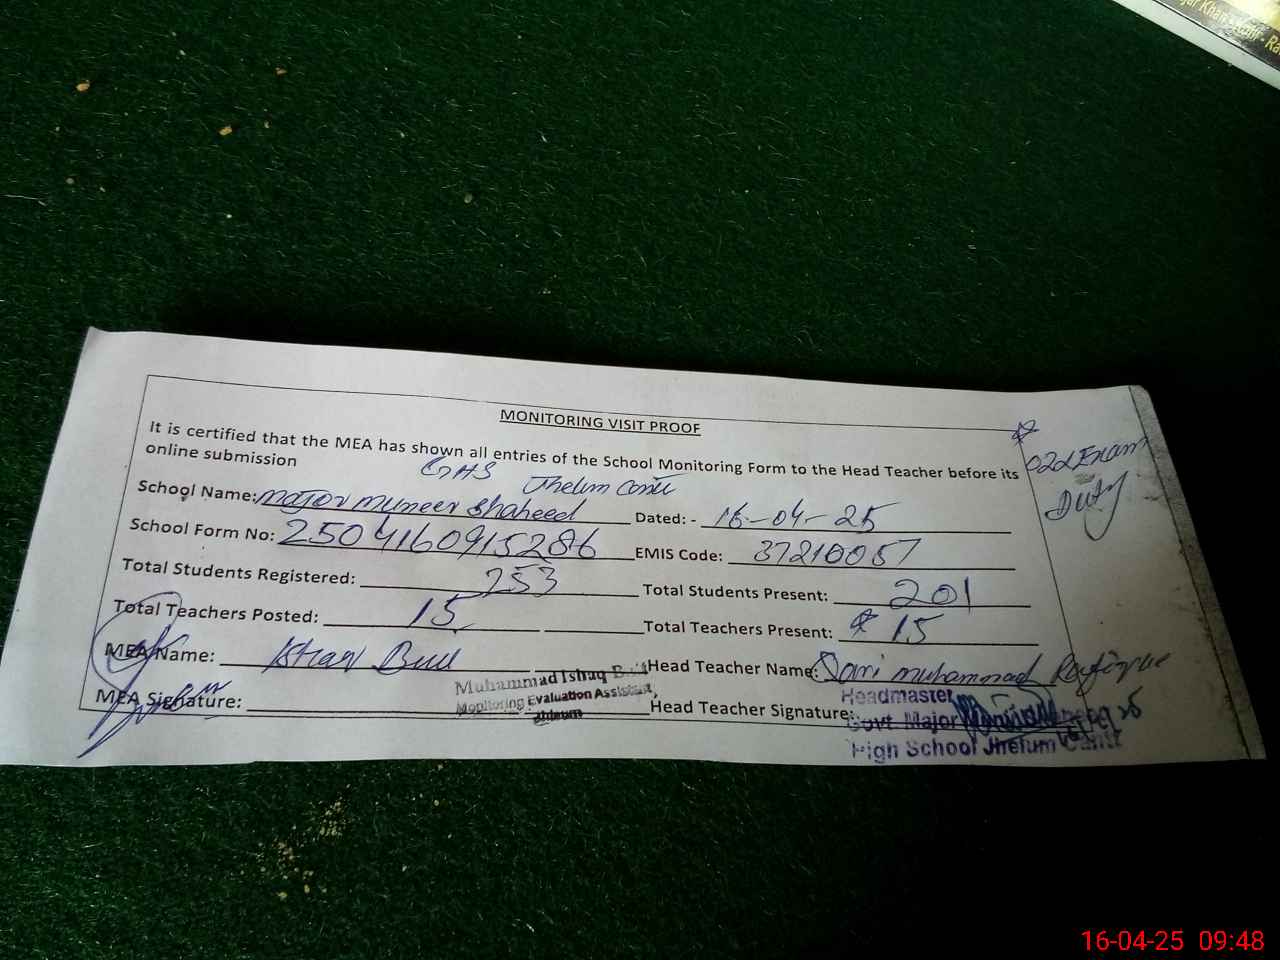 MONITORING VISIT PROOF
It is certified that the MEA has shown all entries of the School Monitoring Form to the Head Teacher before its
online submission
GHS Jhelum Cantt
School Name: major muneer shaheed Dated: - 16-04-25
School Form No: 2504160915286 EMIS Code: 37210057
Total Students Registered: 253 Total Students Present: 201
Total Teachers Posted: 15 Total Teachers Present: * 15
MEA Name: Ishaq Butt Head Teacher Name: Qari muhammad
MEA Signature: Head Teacher Signature:
Muhammad Ishaq
Monitoring Evaluation Assistant,
Jhelum
Headmaster
Govt. Major
High School Jhelum Cantt
* 02 Exam
Duty
Khan
16-04-25 09:48